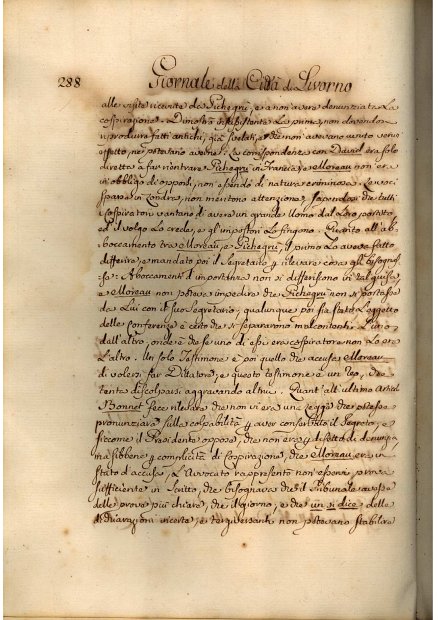 288 Giornale della Città di Livorno
alle visite ricevute da Pichegrù, e a non avere denunziata la
cospirazione. Dimostrò insussistente la prima, non dovendosi
riprodurre fatti antichi, già svelati, e che non avevano avuto verun
effetto, ne potevano averne. La corrispondenza con David era solo
diretta a far rientrare Pichegrù in Francia, e Moreau non era
in obbligo di opporsi, non essendo di natura criminosa. Le voci
sparse in Londra non meritono attenzione, sapendosi che tutti
i cospiratori vantano di avere un grande Uomo dal Loro partito,
ed il volgo lo crede, e gl'impostori lo fingono. Quanto all'ab-
boccamento tra Moreau, e Pichegrù, il primo lo aveva fatto
differire, e mandato poi il Segretario a rilevare cosa gli bisognas-
se. Aboccamenti d'importanza non si differiscono in tal guisa,
e Moreau non poteva impedire che Pichegrù non si portasse
da Lui con il suo Segretario, qualunque poi sia stato l'oggetto
delle conferenze è certo che si separarono malcontenti l'uno
dall'altro, onde che se uno di essi era cospiratore non lo era
l'altro. Un solo Testimone è poi quello che accusa Moreau
di volersi far Dittatore, e questo testimone è un reo, che
tenta discolparsi aggravando altrui. Quant'all'ultimo articolo
Bonnet fece rilevare che non vi era una legge che potesse
pronunziare sulla colpabilità p aver conservato il segreto, e
siccome il Presidente oppose, che non era p difetto di denunzia,
ma sibbene p complicità di cospirazione, che Moreau era in
stato d'accusa, l'Avvocato rappresentò non esservi prova
sufficiente in scritto, che bisognava che il Tribunale avesse
delle prove più chiare, che il giorno, e che un si dice, delle
dichiarazioni incerte, e tergiversanti non potevano stabilire